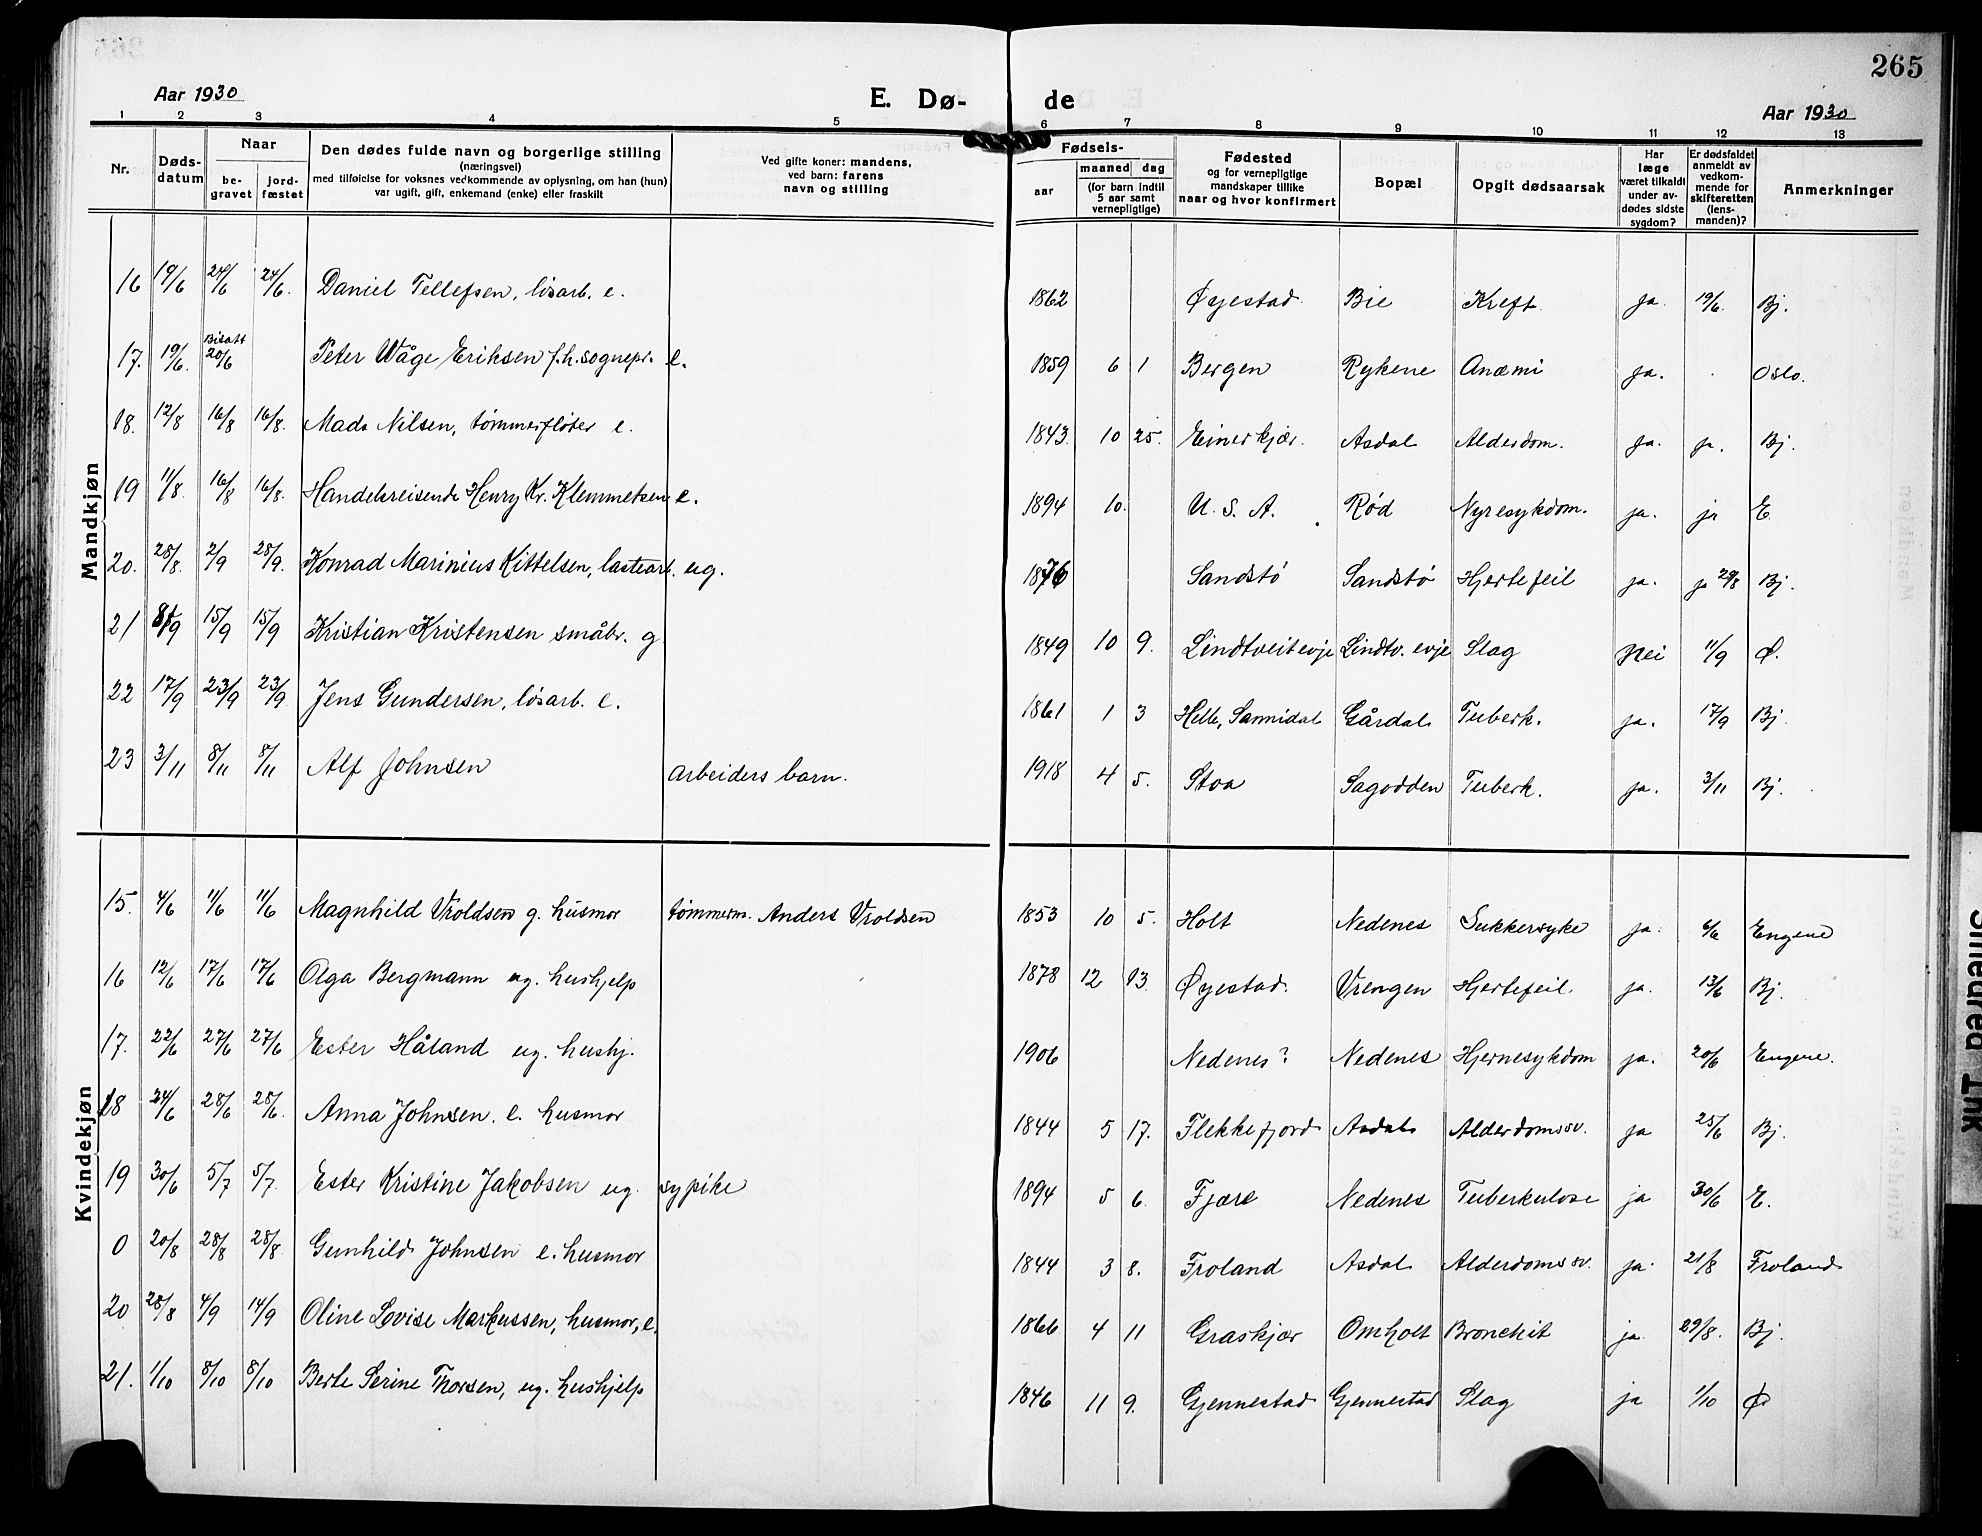 265
Aar 1930
E. Dø- de
Aar 1930
1 2 3 4 5 6 7 8 9 10 11 12 13
Nr.
Døds-
datum
Naar
be-
gravet
jord-
fæstet
Den dødes fulde navn og borgerlige stilling
(næringsvei)
med tilføielse for voksnes vedkommende av oplysning, om han (hun)
var ugift, gift, enkemand (enke) eller fraskilt
Ved gifte koner: mandens,
ved barn: farens
navn og stilling
Fødsels-
aar
maaned
dag
(for barn indtil
5 aar samt
vernepligtige)
Fødested
og for vernepligtige
mandskaper tillike
naar og hvor konfirmert
Bopæl
Opgit dødsaarsak
Har
læge
været tilkaldt
under av-
dødes sidste
sygdom?
Er dødsfaldet
anmeldt av
vedkom-
mende for
skifteretten
(lens-
manden)?
Anmerkninger
Mandkjøn
16 19/6 24/6 24/6. Daniel Tellefsen, løsarb. e. 1862 Øyestad Bie Kreft. ja. 19/6. Bj.
17. 19/6. Bisatt 20/6 Peter Wåge Eriksen f.h. sognepr. e. 1859 6 1 Bergen Rykene Anæmi ja. Oslo.
18. 12/8 16/8 16/8. Mads Nilsen, tømmerfløter e. 1843. 10 25. Einerkjær. Asdal Alderdom. ja. ja. Bj.
19 11/8. 16/8 16/8. Handelsreisende Henry Kr. Klemmetsen e. 1894 10. U. S. A. Rød Nyresykdom. ja. ja E.
20. 28/8. 2/9 28/9. Konrad Marinius Kittelsen, lastearb. ug. 1876 Sandstø Sandstø Hjertefeil ja. ja 29/8 Bj.
21 8/9 15/9 15/9 Kristian Kristensen småbr. g 1849 10 9. Lindtveitevje Lindtv. evje Slag Nei 11/9 Ø.
22 17/9 23/9 23/9 Jens Gundersen, løsarb. e. 1861 1 3 Helle, Sannidal Gårdal Tuberk. ja. 17/9 Bj.
23 3/11 8/11 8/11 Alf Johnsen arbeiders barn. 1918 4 5. Stoa Sagodden Tuberk. ja. 3/11 Bj.
Kvindekjøn
15. 4/6 11/6 11/6 Magnhild Vroldsen g. husmor tømmerm. Anders Vroldsen 1853 10 5. Holt Nedenes Sukkersyke ja. 6/6 Engene
16 12/6 17/6 17/6 Olga Bergmann ug. hushjelp 1878 12 13. Øyestad. Vrengen Hjertefeil. ja. 13/6 Bj.
17. 22/6 27/6 27/6 Ester Håland ug. hushj. 1906 Nedenes? Nedenes Hjernesykdom ja. 20/6 Engene.
18 24/6 28/6 28/6. Anna Johnsen. e. husmor 1844 5 17. Flekkefjord Asdal Alderdomssv. ja 25/6 Bj.
19 30/6 5/7 5/7. Ester Kristine Jakobsen ug. sypike 1894 5 6. Fjære Nedenes Tuberkulose ja 30/6 E.
0 20/8 28/8 28/8 Gunhild Johnsen e. husmor 1844 3 8. Froland Asdal Alderdomssv. ja. 21/8 Froland
20 28/8 4/9 14/9 Oline Lovise Markussen, husmor, e. 1866 4 11 Graskjær Omholt Bronchit ja. 29/8. Bj.
21. 1/10 8/10 8/10 Berte Serine Thorsen, ug. hushjelp 1846 11 9. Gjennestad Gjennestad Slag ja 1/10 Ø
Smeared Ink